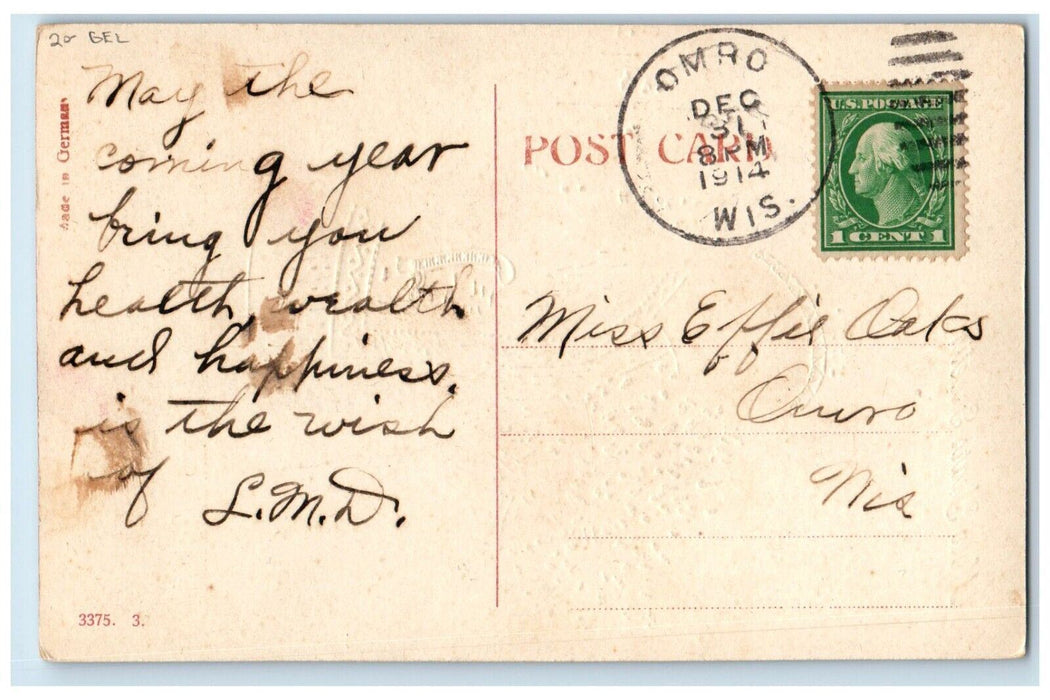 20 GEL
Made in Germany
May the
coming year
bring you
health, wealth
and happiness.
is the wish
of
L.M.D.
3375. 3.
POST CARD
OMRO
DEC
31
8 PM
1914
WIS.
U.S. POSTAGE
1 CENT 1
Miss Effie Oaks
Omro
Wis